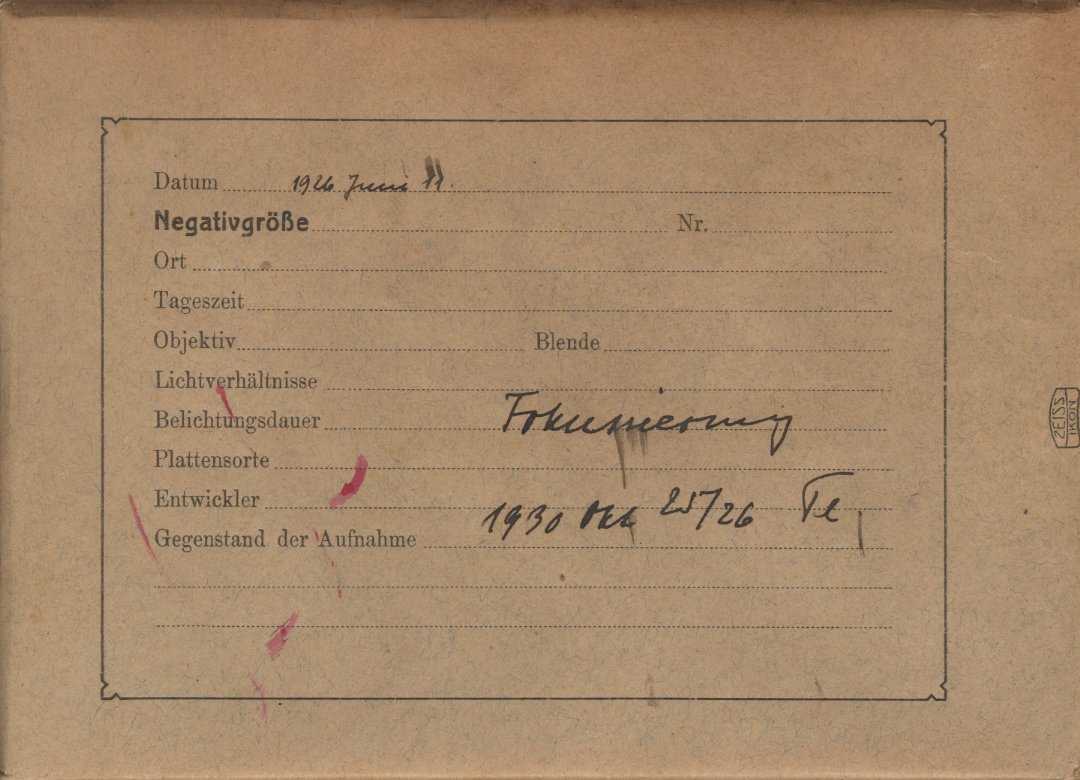 Datum 1926 Juni 11.
Negativgröße Nr.
Ort
Tageszeit
Objektiv Blende
Lichtverhältnisse
Belichtungsdauer Fokussierung
Plattensorte
Entwickler
1930 Okt 25/26 Te
Gegenstand der Aufnahme
ZEISS
IKON